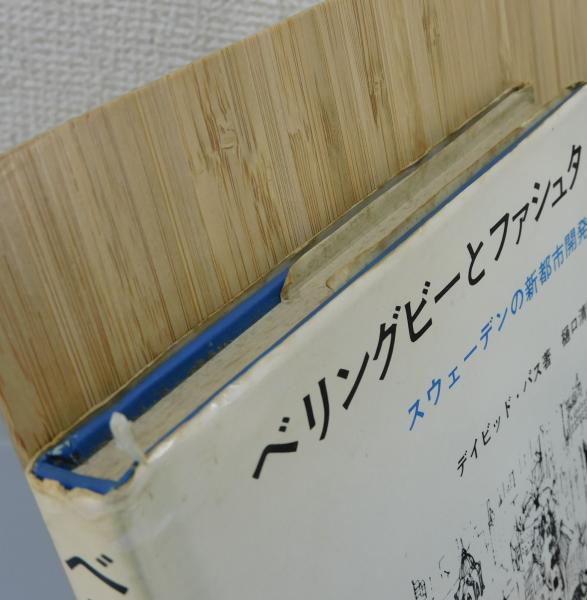 ベリングビーとファシュタ
スウェーデンの新都市開発
デイビッド・パス著 樋口清
ベ